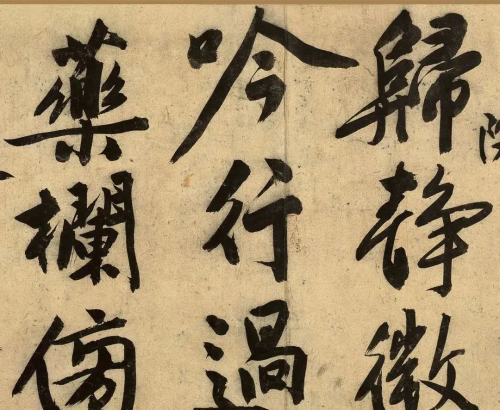 歸靜微
吟行過
藥欄傍